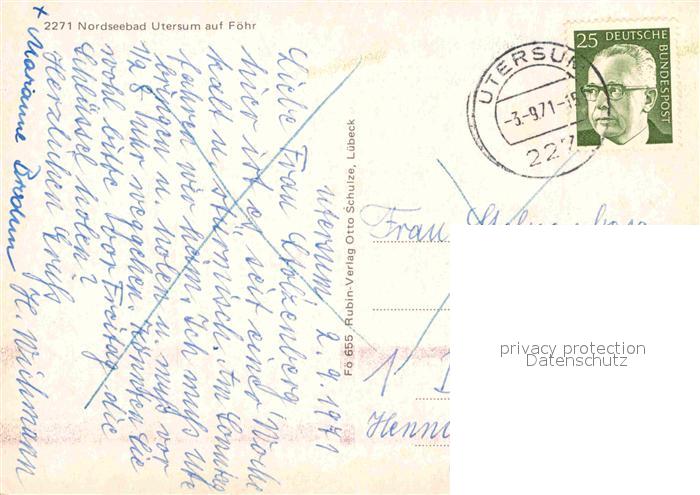 2271 Nordseebad Utersum auf Föhr
Utersum 2.9.1971
Liebe Frau Stolzenberg
hier ist es seit einer Woche
kalt u. stürmisch. Am Sonntag
fahren wir heim. Ich muß Ute
bringen u. holen u. muß vor
1/2 8 Uhr weggehen. Könnten Sie
wohl bitte vor Freitag die
Schlüssel holen?
Herzlichen Gruß
H. Weihmann
+ Marianne
Fö 655 Rubin-Verlag Otto Schulze, Lübeck
25 DEUTSCHE
BUNDESPOST
UTERSUM
-3.-9.71-18
227
Frau Stolzenberg
1
privacy protection
Datenschutz